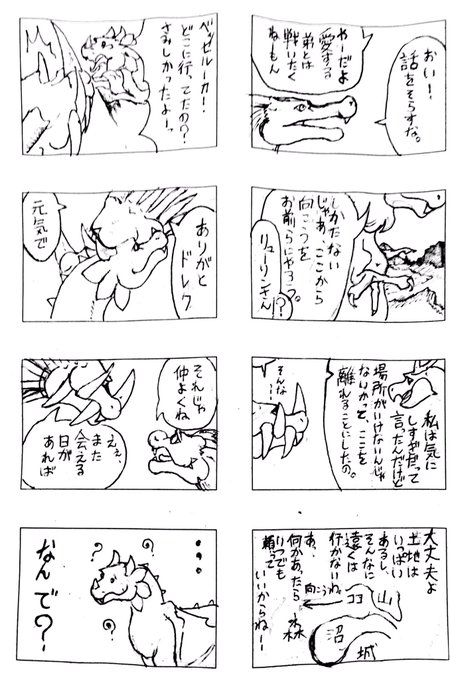 おい!
話をそらすな。
やーだよ
愛する
弟とは
戦いたく
ねーもん
しかたない
じゃあ、ここから
向こうを
お前らにやろう。
リューリンさん
?
私は気に
しすぎだって
言ったんだけど
場所がいけないんじゃ
ないかって、ここを
離れることにしたの。
そんな…
大丈夫よ
土地は
いっぱい
あるし、
そんなに
遠くは
行かないわ
あ、
何かあったら
いつでも
頼って
いいからねー
山
ココ
向こう
森
沼
城
ベッゼルーカ!
どこに行ってたの?
さみしかったよーっ
ありがと
ドレク
元気で
それじゃ
仲よくね
ええ、
また
会える
日が
あれば
・・・
?
?
?
なんで?